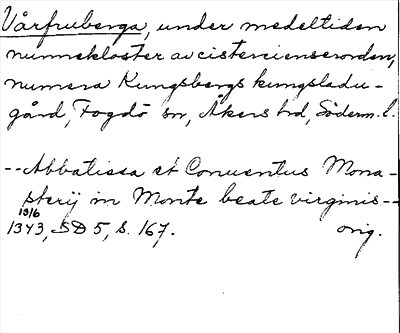 Vårfruberga, under medeltiden
nunnekloster av cistercienserorden,
numera Kungsbergs kungsladu-
gård, Fogdö sn, Åkers hd, Söderm. l.
--Abbatissa et Conuentus Mona-
sterij in Monte beate virginis--
19/6
1343, SD 5, s. 167. orig.